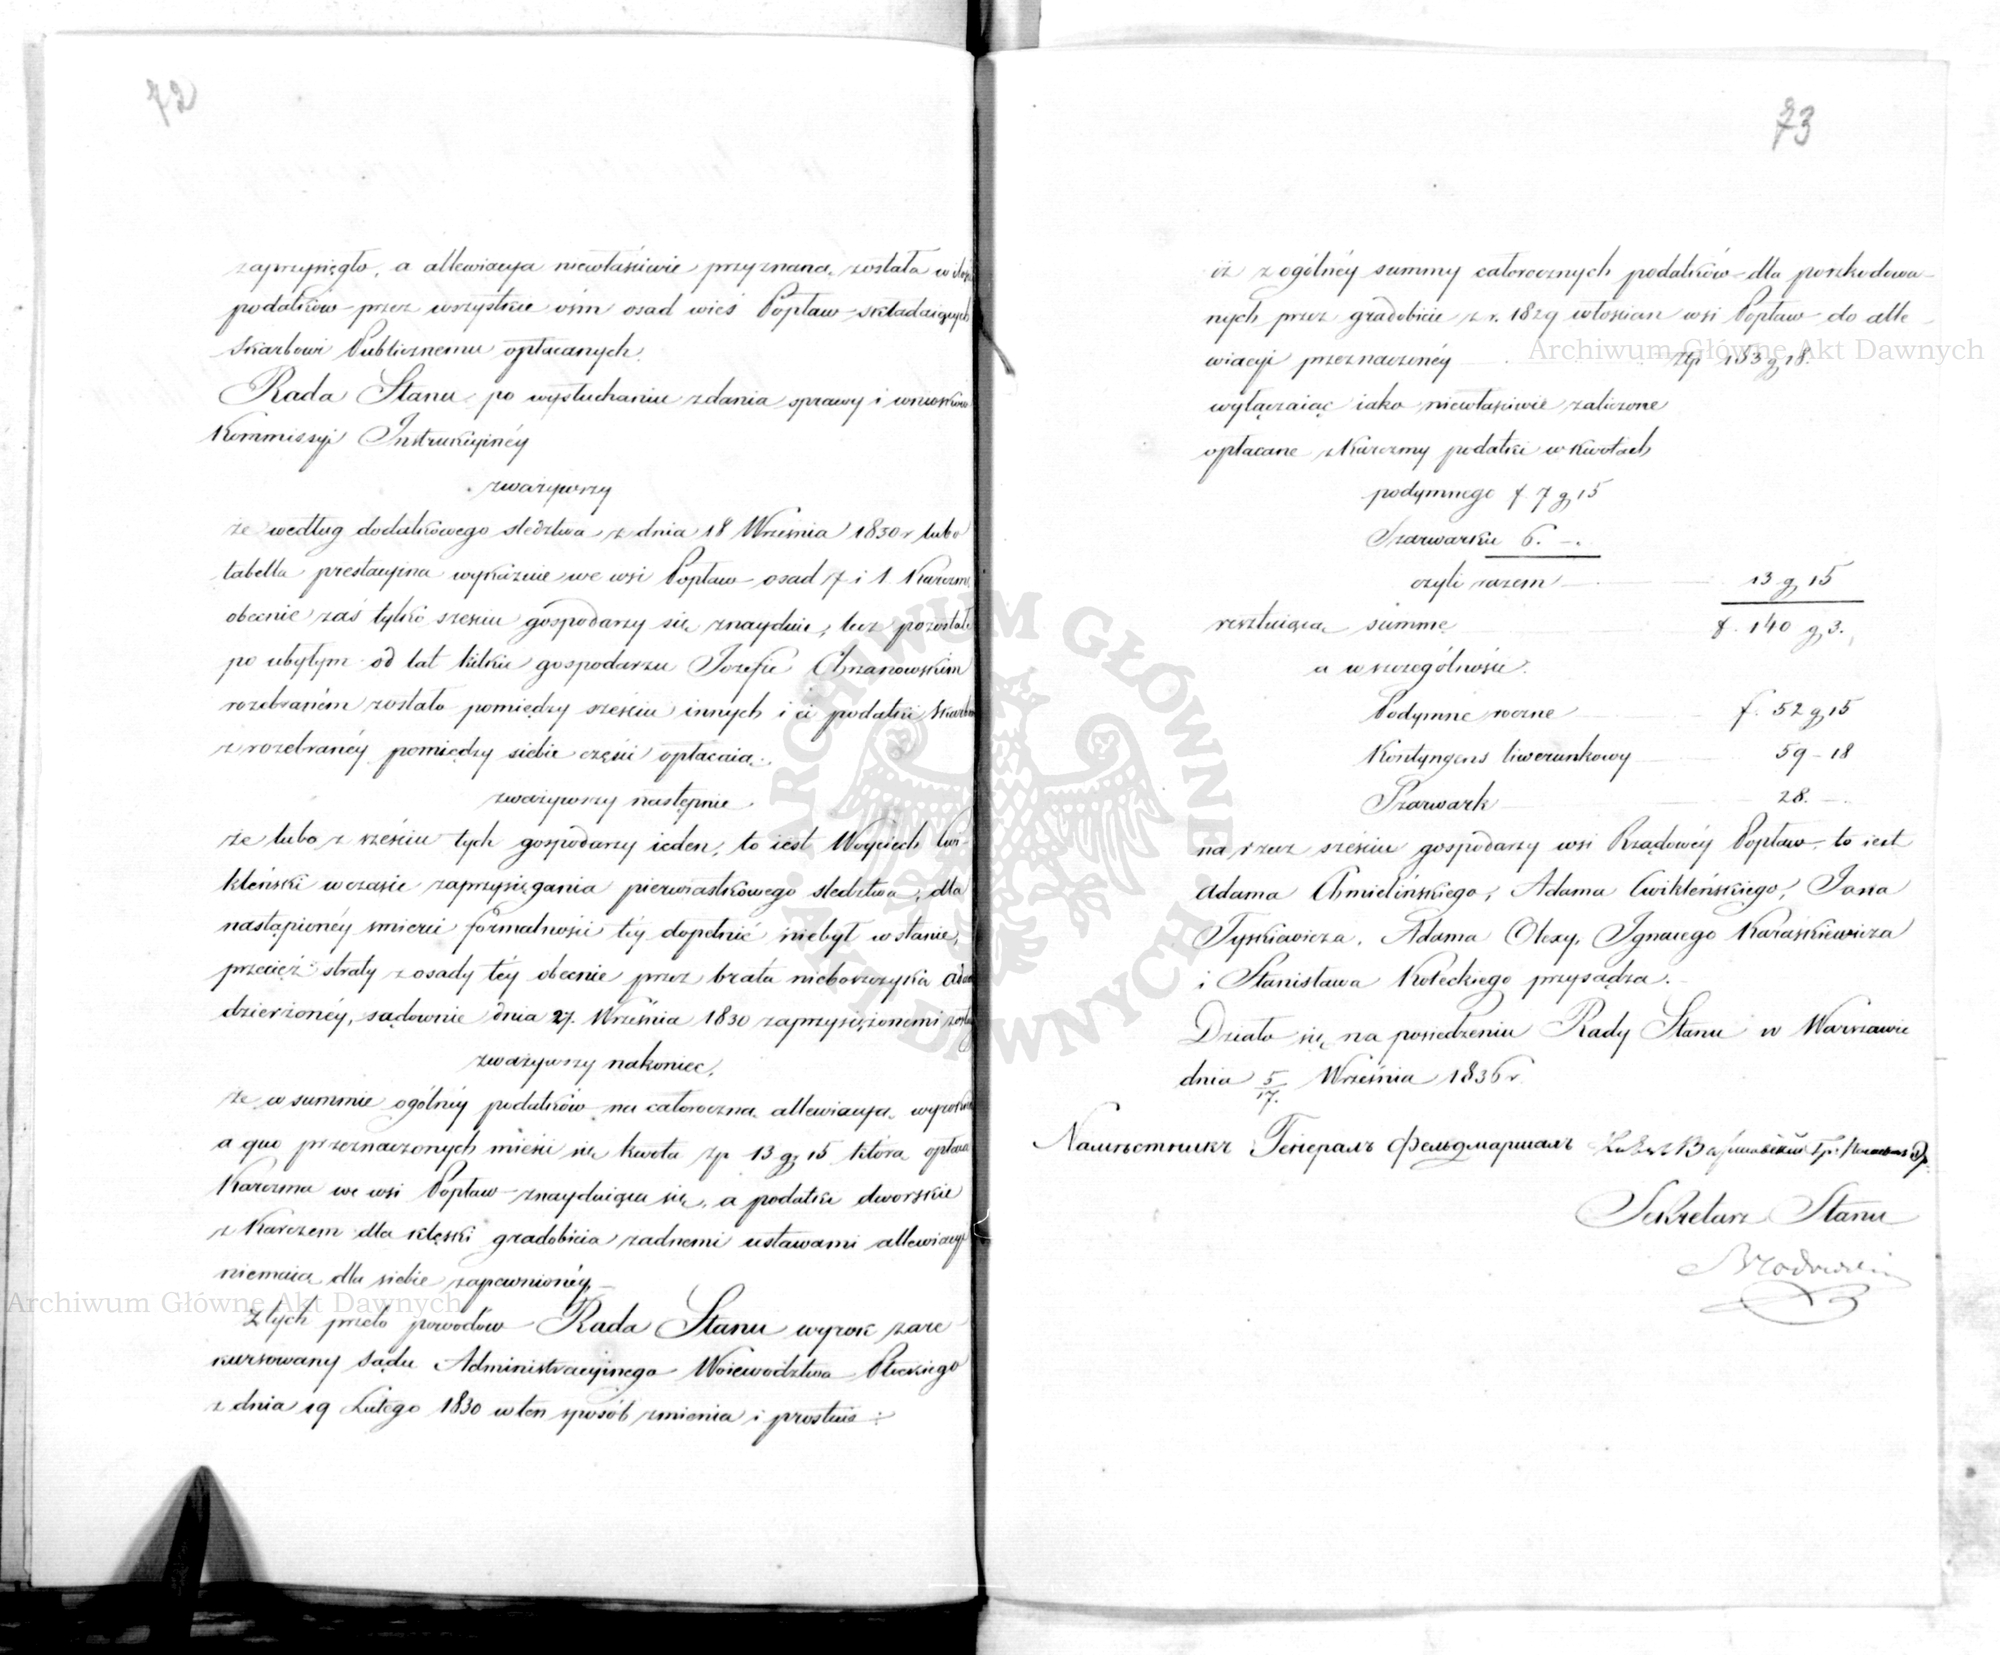 72
zaprzysięgło, a allewiacya niewłaściwie przyznaną została w
podatków przez wszystkie ośm osad wieś Popław składaiących
Skarbowi Publicznemu opłacanych.
Rada Stanu po wysłuchaniu zdania sprawy i wniosków
Kommissyi Instrukcyinéy
zważywszy
że według dodatkowego sledztwa z dnia 18 Września 1830 r lubo
tabella prestacyina wykazuie we wsi Popław osad 7 i 1 Karczm
obecnie zaś tylko sześciu gospodarzy się znayduie, lecz pozostałe
po ubyłym od lat kilku gospodarzu Jozefie Chrzanowskim
rozebraném zostało pomiędzy sześciu innych i ci podatki Skarbo
z rozebranéy pomiędzy siebie części opłacaią.
zważywszy następnie
że lubo z sześciu tych gospodarzy ieden, to iest Woyciech Ćwi-
kleński w czasie zaprzysięgania pierwiastkowego sledztwa, dla
nastąpionéy smierci formalności téy dopełnić niebył w stanie,
przecięż straty z osady téy obecnie przez brata nieboszczyka Adam
dzierżonéy, sądownie dnia 27. Września 1830 zaprzysiężonemi zosta
zważywszy nakoniec,
że w summie ogólnéy podatków na całoroczną allewiacyą wyrokiem
a quo przeznaczonych mieści się kwota zp 13 g. 15 którą opłaca
Karczma we wsi Popław znayduiąca się, a podatki dworskie
z Karczem dla klęski gradobicia żadnemi ustawami allewiacyi
niemaią dla siebie zapewnionéy
Z tych przeto powodów Rada Stanu wyrok zare
kursowany Sądu Administracyinego Woiewodztwa Płockiego
z dnia 19 Lutego 1830 w ten sposób zmienia i prostuie:
73
iż z ogólnéy summy całorocznych podatków dla poszkodowa-
nych przez gradobicie z r. 1829 włościan wsi Popław do alle-
wiacyi przeznaczonéy złp 153 g 18.
wyłączaiąc iako niewłaściwie zaliczone
opłacane z Karczmy podatki w kwotach
podymnego f. 7 g 15
Szarwarku 6. –.
czyli razem 13 g 15
resztuiącą summę f. 140 g 3.
a w szczególności:
Podymne roczne f. 52 g 15
Kontyngens liwerunkowy 59 – 18
Szarwark 28. –.
na rzecz sześciu gospodarzy wsi Rządowéy Popław, to iest
Adama Chmielińskiego, Adama Ćwikleńskiego, Jana
Tyskiewicza, Adama Olexy, Ignacego Karaśkiewicza
i Stanisława Kołeckiego przysądza.
Działo się na posiedzeniu Rady Stanu w Warszawie
dnia 5/17. Września 1836 r.
Намѣстникъ Генералъ Фельдмаршалъ
Sekretarz Stanu
Archiwum Główne Akt Dawnych
Archiwum Główne Akt Dawnych
ARCHIWUM GŁÓWNE AKT DAWNYCH